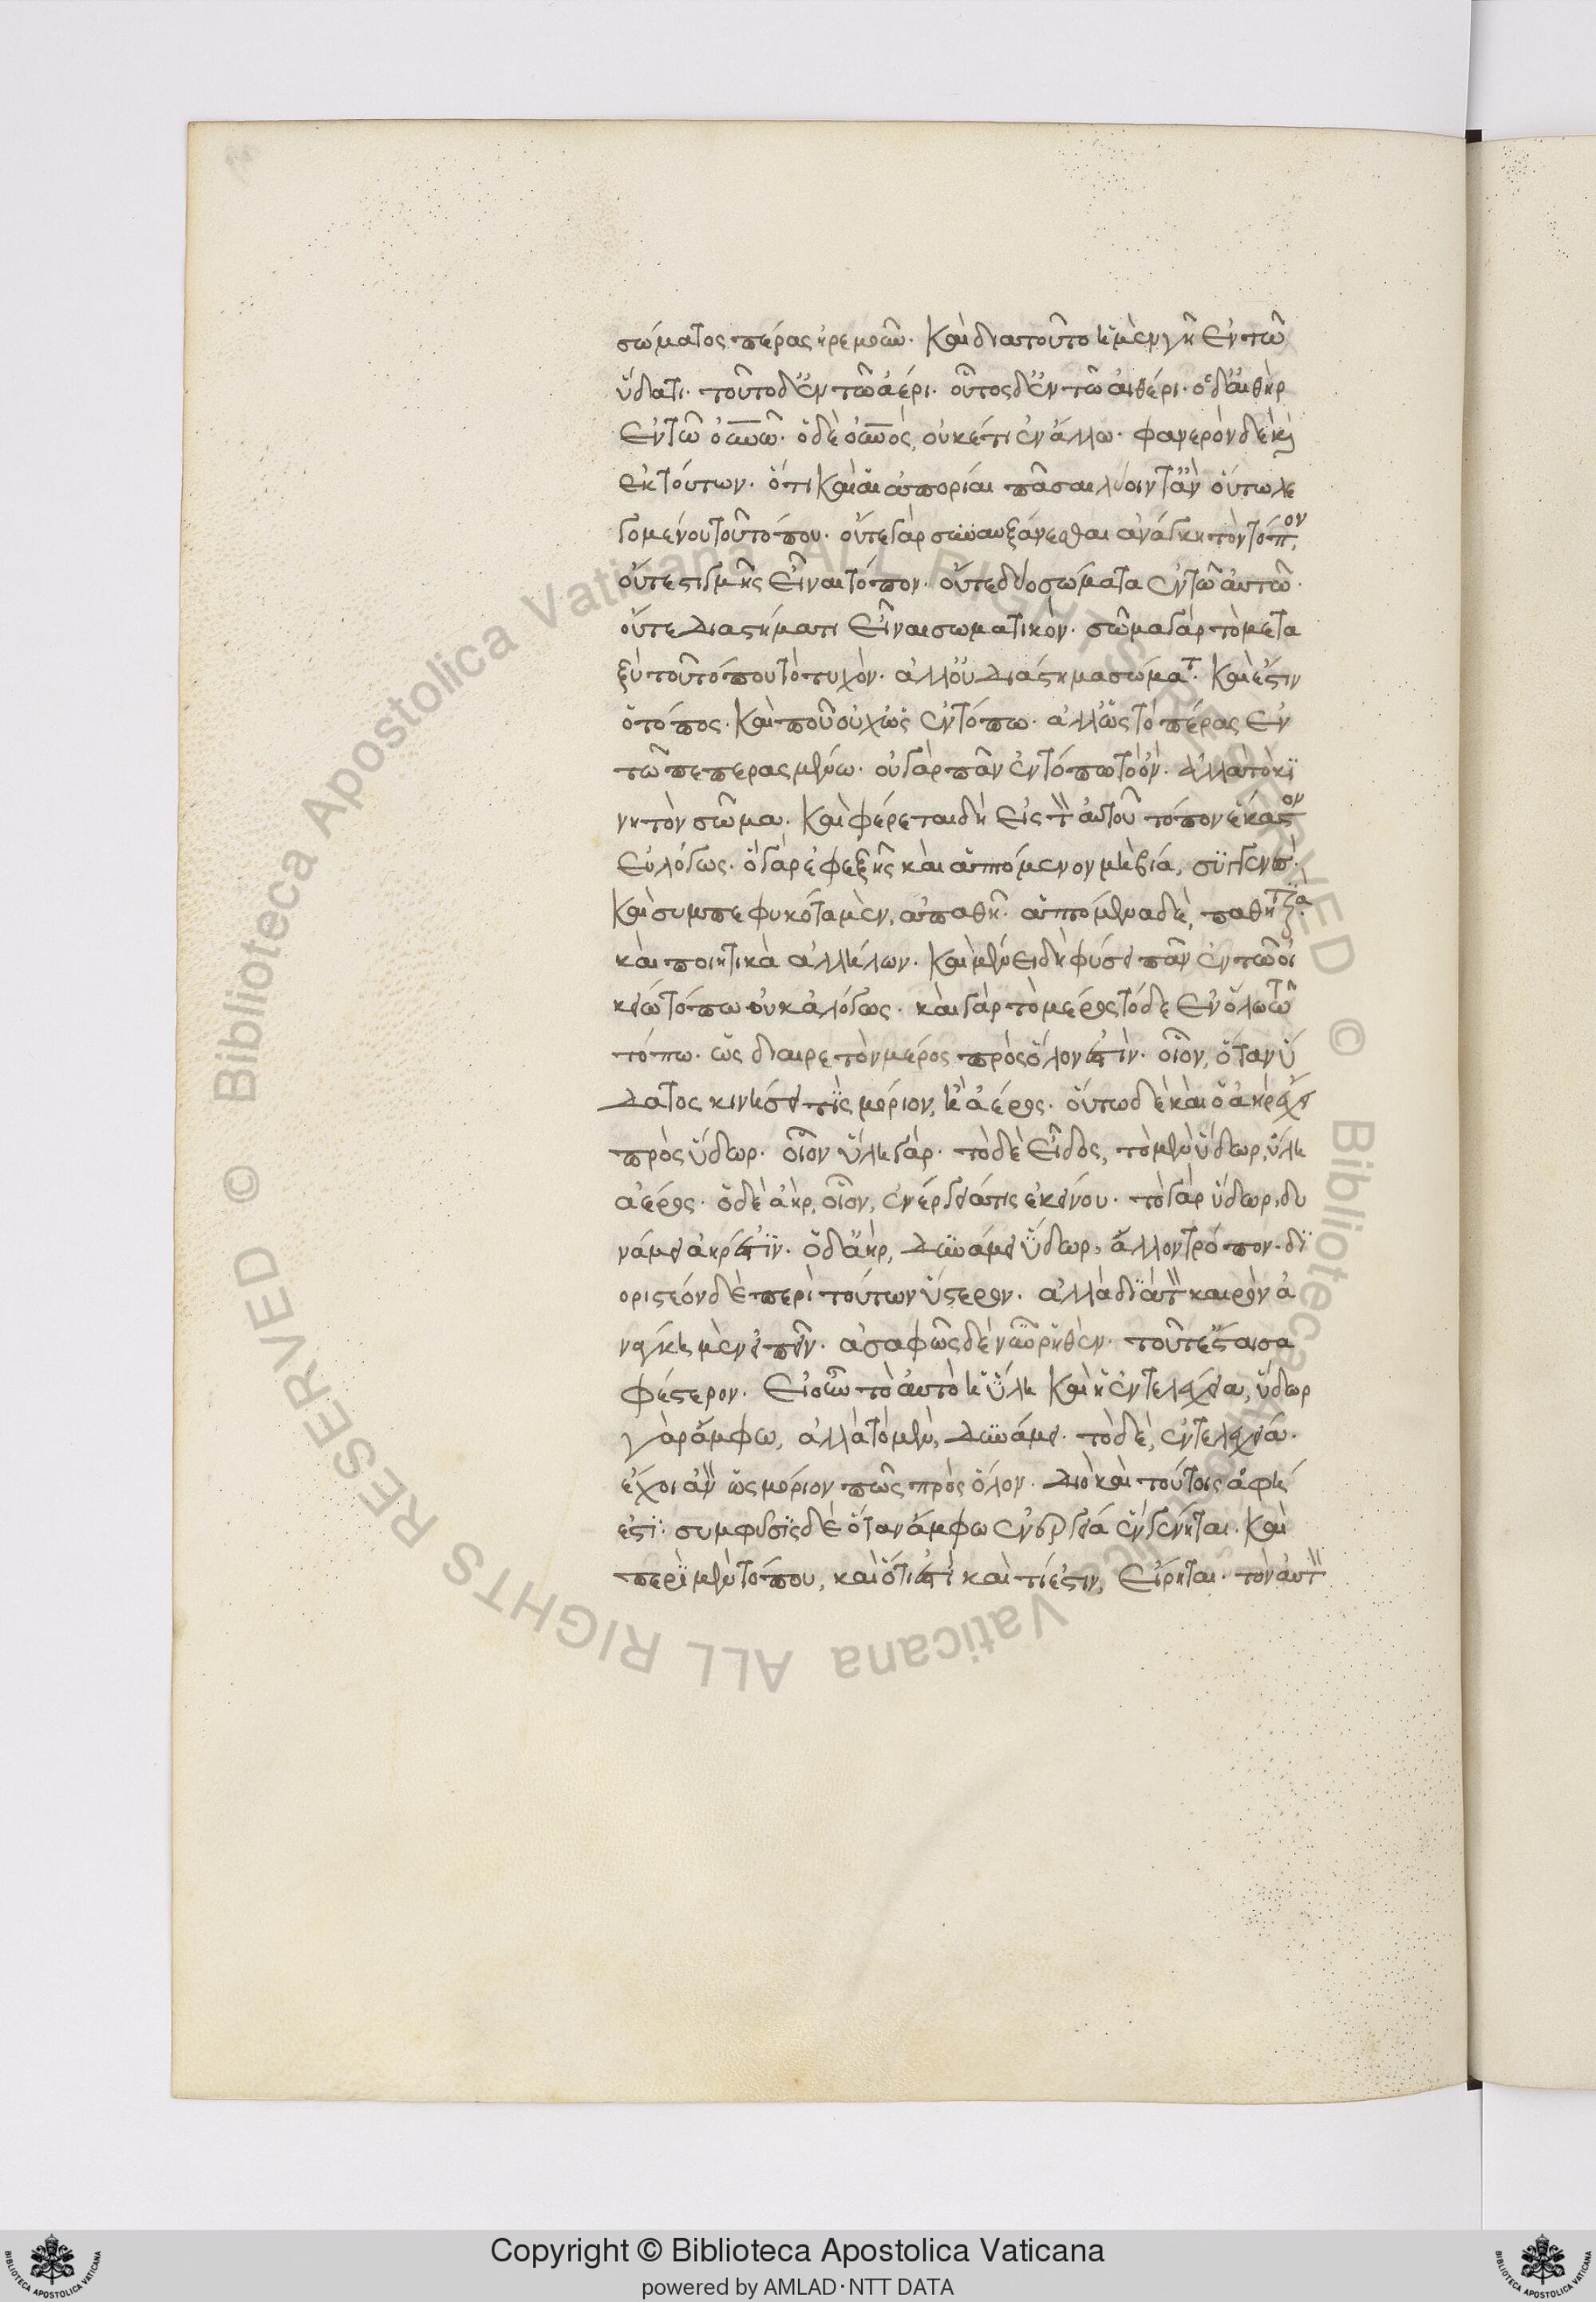 σώματος πέρας ἠρεμοῦν. Καὶ διατοῦτο ἡ μὲν γῆ ἐν τῶ
ὕδατι. τοῦτο δ' ἐν τῶ ἀέρι. οὗτος δ' ἐν τῶ αἰθέρι. ὁ δ' αἰθὴρ
ἐν τῶ οὐνῶ. ὁ δὲ οὐνός, οὐκέτι ἐν ἄλλω. φανερὸν δὲ κὶ
ἐκ τούτων. ὅτι καὶ αἱ ἀπορίαι πᾶσαι λύοιντ' ἂν οὕτω λε
γομένου τοῦ τόπου. οὔτε γὰρ συναυξάνεσθαι ἀνάγκη τὸν τόπον,
οὔτε στιγμῆς εἶναι τόπον. οὔτε δύο σώματα ἐν τῶ αὐτῶ.
οὔτε διαστήματι εἶναι σωματικόν. σῶμα γὰρ τὸ μετα
ξὺ τοῦ τόπου τὸ τυχὸν. ἀλλ' οὐ διάστημα σώματ. Καὶ ἔστιν
ὁ τόπος. Καὶ ποῦ οὐχ ὡς ἐν τόπω. ἀλλ' ὡς τὸ πέρας ἐν
τῶ πεπερασμένω. οὐ γὰρ πᾶν ἐν τόπω τὸ ὂν. ἀλλὰ τὸ κι
νητὸν σῶμα. Καὶ φέρεται δὴ εἰς τ αὑτοῦ τόπον ἕκαστον
εὐλόγως. ὃ γὰρ ἐφεξῆς καὶ ἁπτόμενον μὴ βία, συγγενὲ.
Καὶ συμπεφυκότα μὲν, ἀπαθῆ. ἁπτόμενα δὲ, παθητικὰ
καὶ ποιητικὰ ἀλλήλων. Καὶ μένει δὴ φύσει πᾶν ἐν τῶ οἰ
κείω τόπω οὐκ ἀλόγως. καὶ γὰρ τὸ μέρος τόδε ἐν ὅλω τῶ
τόπω. ὡς διαιρετὸν μέρος πρὸς ὅλον ἐστὶν. οἷον, ὅταν ὕ
δατος κινήση τις μόριον, ἢ ἀέρος. οὕτω δὲ καὶ ὁ ἀὴρ ἔχει
πρὸς ὕδωρ. οἷον ὕλη γάρ. τὸ δὲ εἶδος, τὸ μὲν ὕδωρ, ὕλη
ἀέρος. ὁ δὲ ἀὴρ, οἷον, ἐνέργειά τις ἐκείνου. τὸ γὰρ ὕδωρ, δυ
νάμει ἀήρ ἐστιν. ὁ δ' ἀὴρ, δυνάμει ὕδωρ, ἄλλον τρόπον. δι
οριστέον δὲ περὶ τούτων ὕστερον. ἀλλὰ διὰ τ καιρὸν ἀ
νάγκη μὲν εἰπεῖν. ἀσαφῶς δὲ νῦν ῥηθὲν. τοῦτ' ἔσται σα
φέστερον. Εἰ οὖν τὸ αὐτὸ ἡ ὕλη καὶ ἡ ἐντελέχεια, ὕδωρ
γὰρ ἄμφω, ἀλλὰ τὸ μὲν, δυνάμει. τὸ δὲ, ἐντελεχεία.
ἔχοι ἂν ὡς μόριον πῶς πρὸς ὅλον. διὸ καὶ τούτοις ἁφή
ἐστι. συμφυσις δὲ ὅταν ἄμφω ἐνεργεία ἓν γένηται. Καὶ
περὶ μὲν τόπου, καὶ ὅτι ἐστὶ καὶ τί ἐστιν, εἴρηται. τὸν αὐτ
Copyright © Biblioteca Apostolica Vaticana
powered by AMLAD·NTT DATA